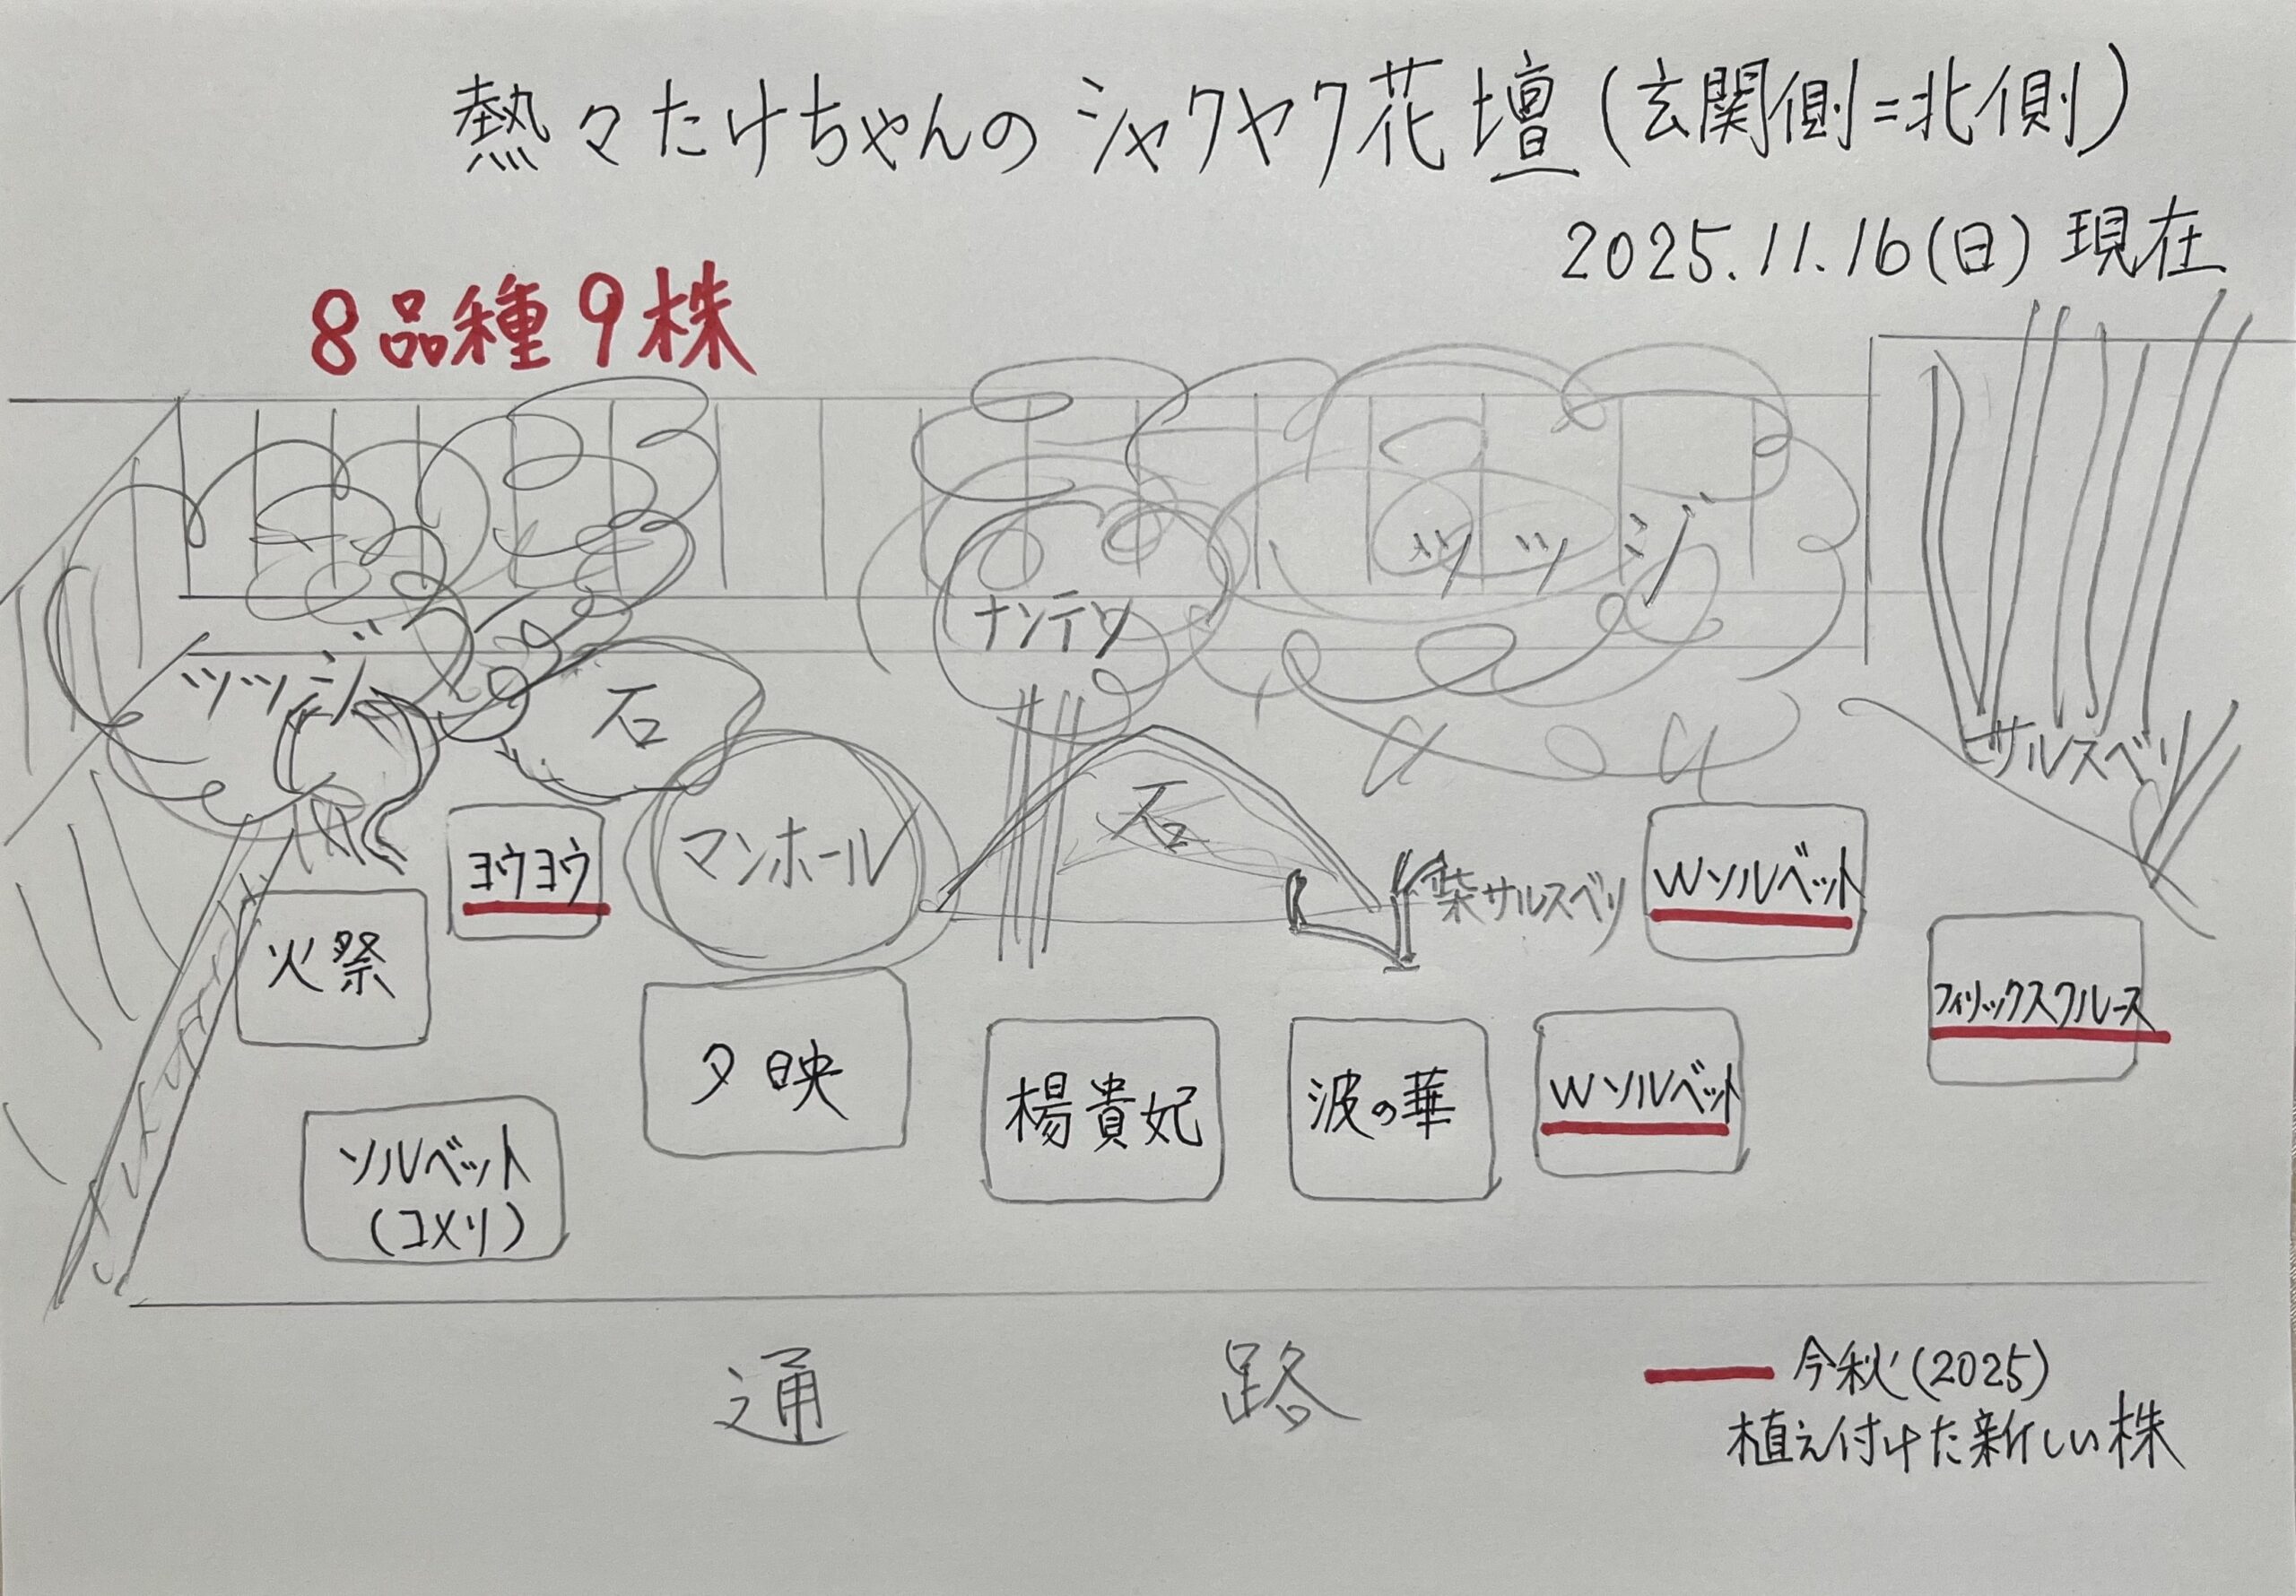 熱々たけちゃんのシャクヤク花壇(玄関側=北側)
2025.11.16(日)現在
8品種9株
ツツジ
ナンテン
ツツジ
石
サルスベリ
マンホール
石
ヨウヨウ
紫サルスベリ
Wソルベット
火祭
フィリックスクルース
夕映
楊貴妃
波の華
Wソルベット
ソルベット
(コメリ)
通路
今秋(2025)
植え付けた新しい株